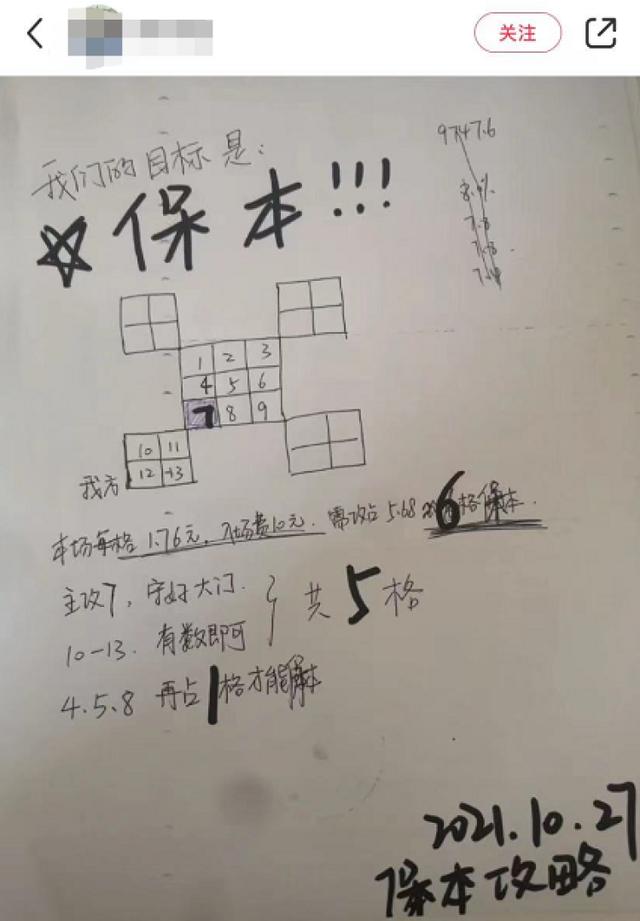 关注
我们的目标是:
9747.6
保本!!!
8.4%
7.8
7.8
1 2 3
4 5 6
7 8 9
10 11
12 13
我方
本场每格 1.76元, 入场费10元. 需攻占 5.68 6格保本.
主攻7, 守好大门.
10-13. 有数即可
共5格
4.5.8 再占1格才能保本
2021.10.27
保本攻略